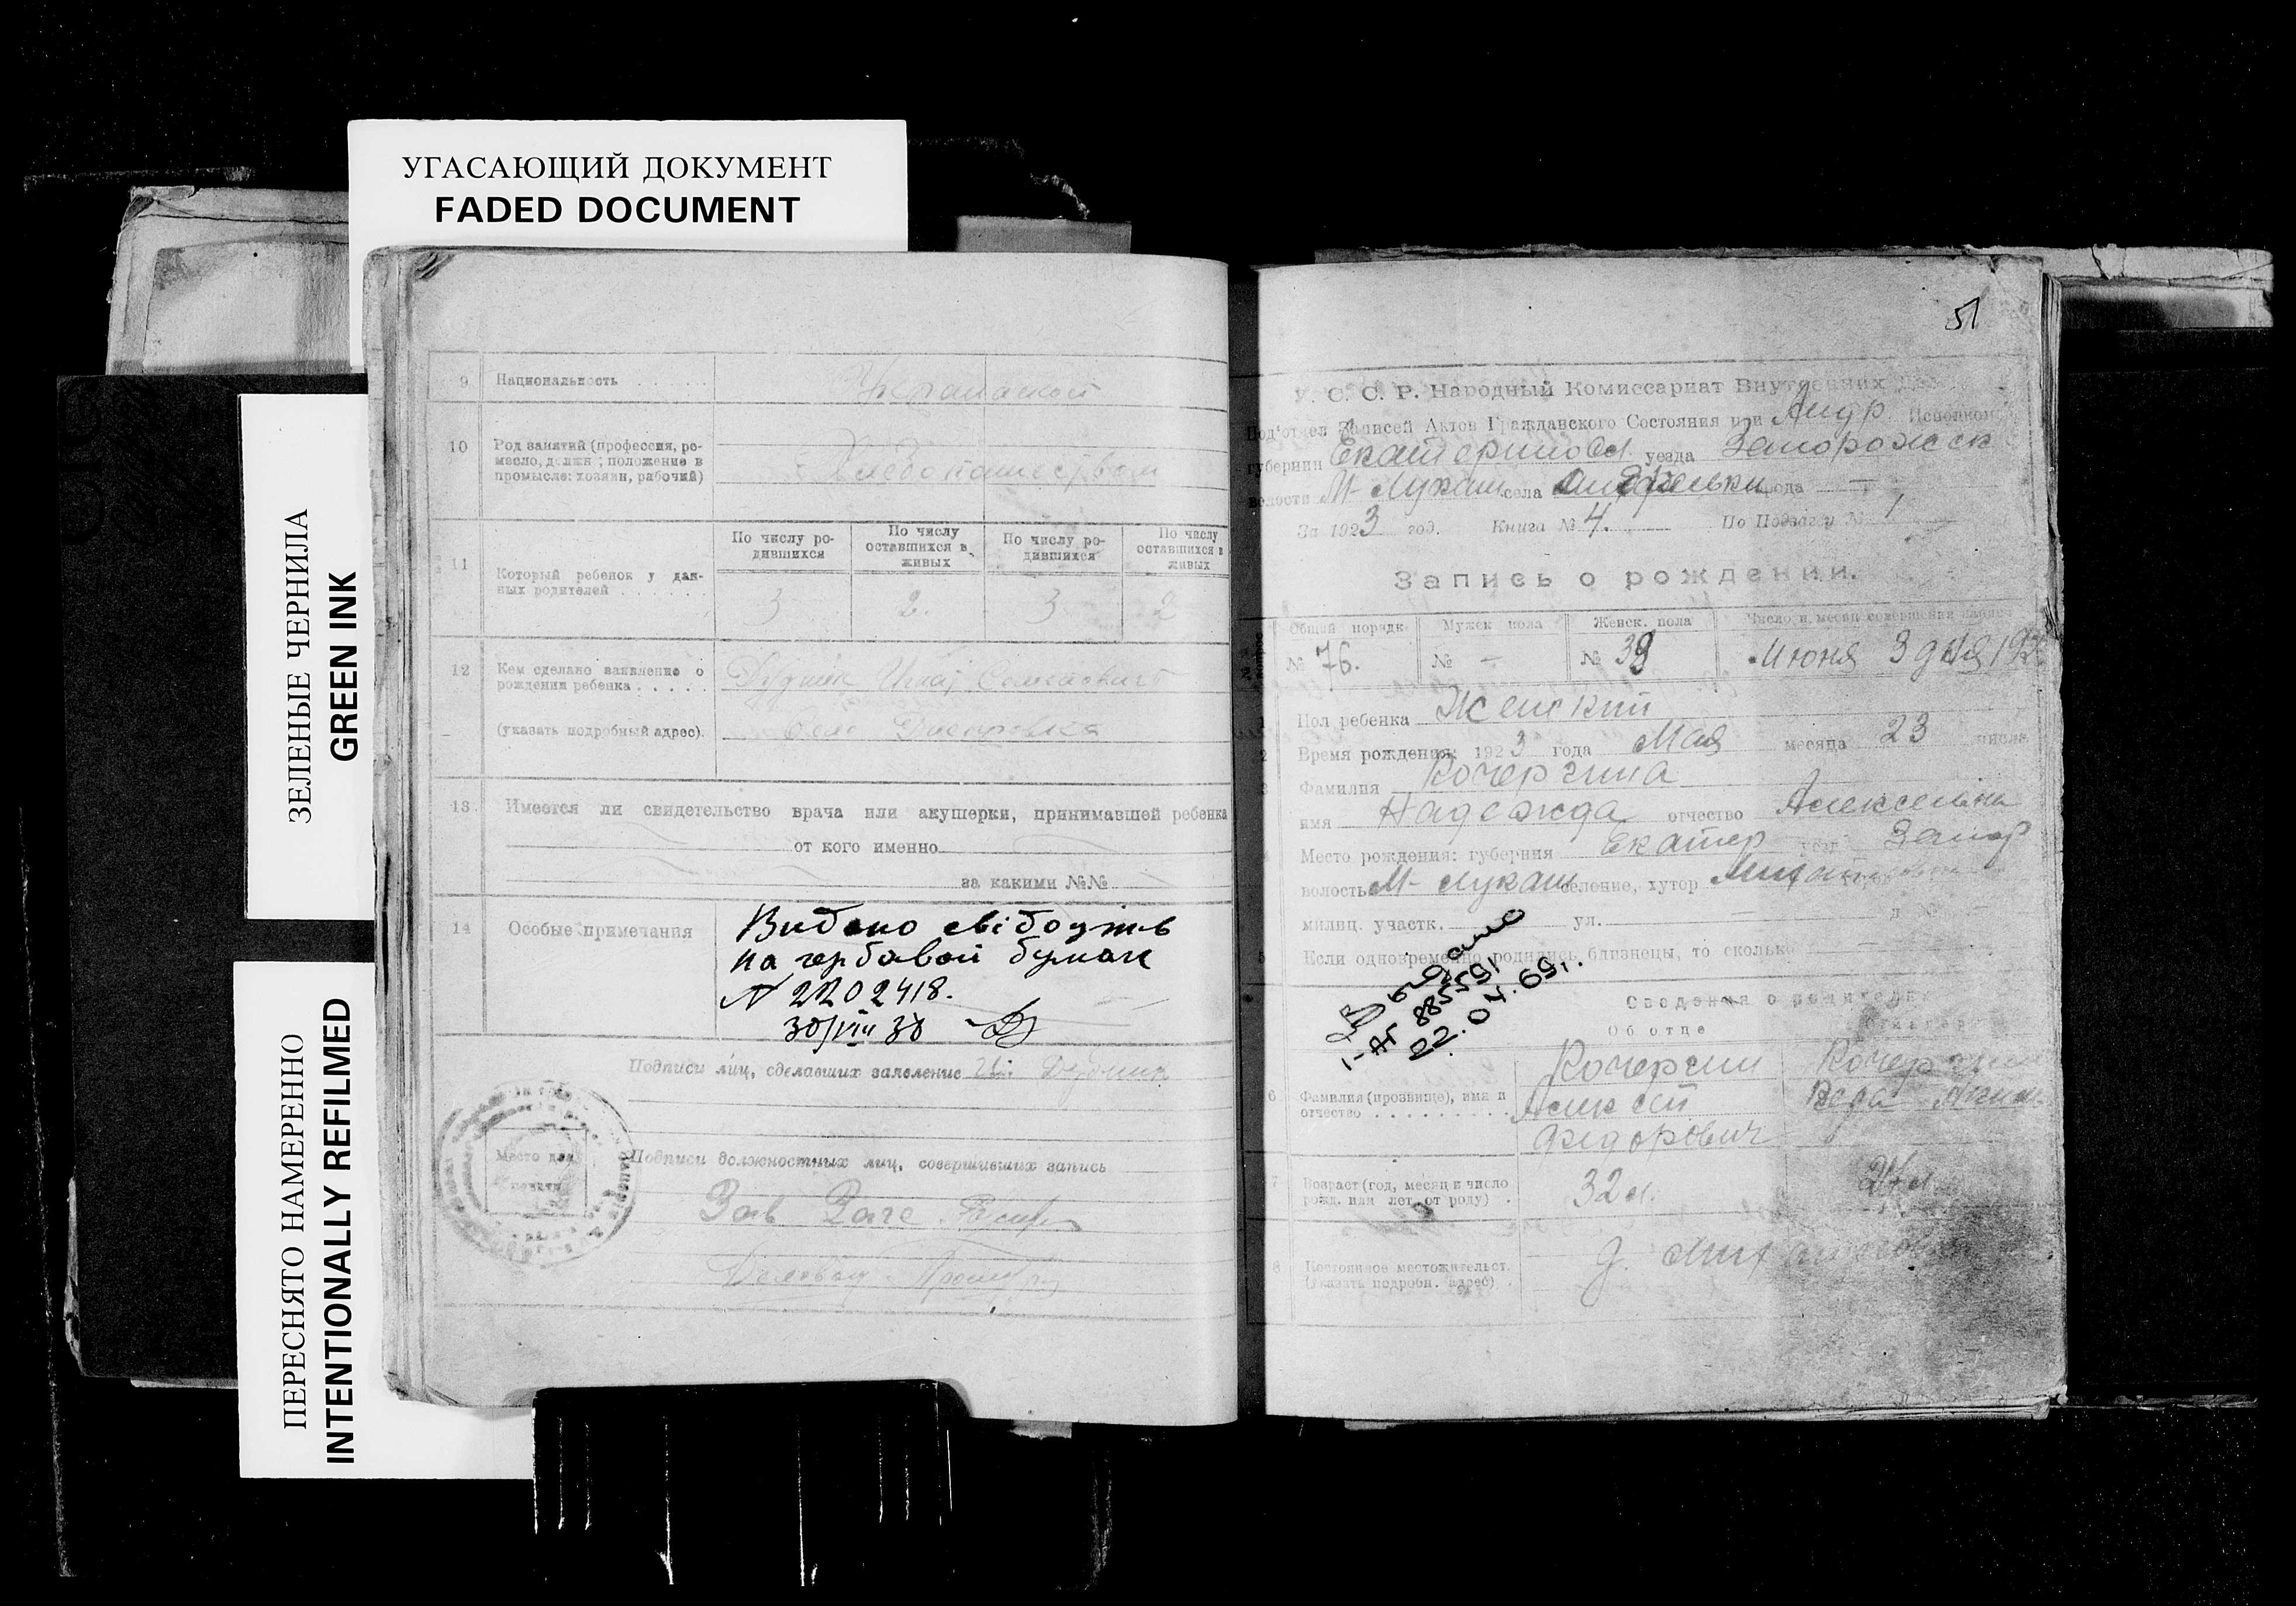 УГАСАЮЩИЙ ДОКУМЕНТ
FADED DOCUMENT
ЗЕЛЕНЫЕ ЧЕРНИЛА
GREEN INK
ПЕРЕСНЯТО НАМЕРЕННО
INTENTIONALLY REFILMED
9 Национальность
10 Род занятий (профессия, ре-
месло, должн; положение в
промысле: хозяин, рабочий)
Хлебопашеством
По числу ро-
дившихся
По числу
оставшихся в
живых
По числу ро-
дившихся
По числу
оставшихся в
живых
11 Который ребенок у дан-
ных родителей
3 2. 3 2
12 Кем сделано заявление о
рождении ребенка
(указать подробный адрес).
село
13. Имеется ли свидетельство врача или акушерки, принимавшей ребенка
от кого именно
за какими №№
14 Особые примечания
Видано свідоцтв
на гербавой бумаге
N 2202418.
30/VIII 38
Подписи лиц, сделавших заявление Дудник
Место для
печати
Подписи должностных лиц, совершивших запись
Зав Загс
51
У. С. С. Р. Народный Комиссариат Внутренних
Под'отдел Записей Актов Гражданского Состояния при Андр Исполком
губернии Екатериносл уезда Запорожск
волости М-Лукаш села города —
За 1923 год. Книга № 4. По Подзагсу № 1
Запись о рождении.
Общий порядк. Мужск пола Женск. пола Число и месяц совершения записи
№ 76. № — № 39 Июня 3 дня 192
1 Пол ребенка Женский
2 Время рождения: 1923 года Мая месяца 23 числа
3 Фамилия Кочергина
имя Надежда отчество Алексеевна
4 Место рождения: губерния Екатер уезд Запор
волость М-Лукаш селение, хутор
милиц. участк. ул. д №
5 Если одновременно родились близнецы, то сколько —
Выдано
I-АГ 885591
22.07.69г.
Сведения о родителях
Об отце О матери
6 Фамилия (прозвище), имя и
отчество
Кочергин
Алексей
Федорович
Вера
7 Возраст (год, месяц и число
рожд. или лет от роду)
32 л.
8 Постоянное местожительст.
(указать подробн. адрес)